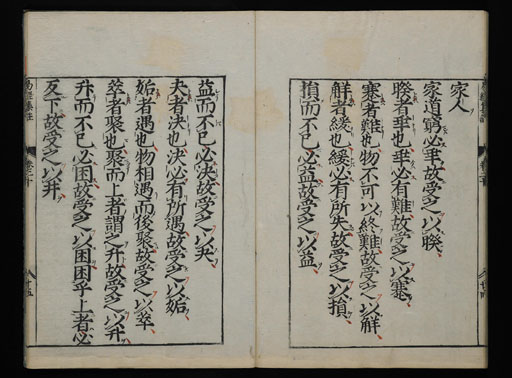 家人
家道窮必乖故受之以睽
睽者乖也乖必有難故受之以蹇
蹇者難也物不可以終難故受之以解
解者緩也緩必有所失故受之以損
損而不已必益故受之以益
益而不已必決故受之以夬
夬者決也決必有所遇故受之以姤
姤者遇也物相遇而後聚故受之以萃
萃者聚也聚而上者謂之升故受之以升
升而不已必困故受之以困困乎上者必
反下故受之以井